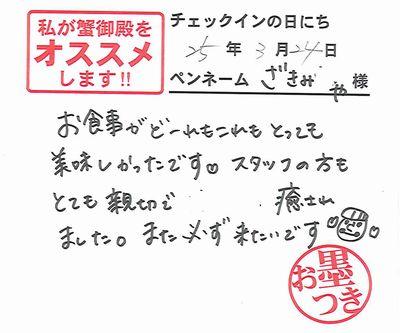 私が蟹御殿を
オススメ
します!!
チェックインの日にち
25年3月24日
ペンネーム ざきみや様
お食事がどーれもこれもとっても
美味しかったです♡ スタッフの方も
とても親切で 癒され
ました。また必ず来たいです
お墨つき